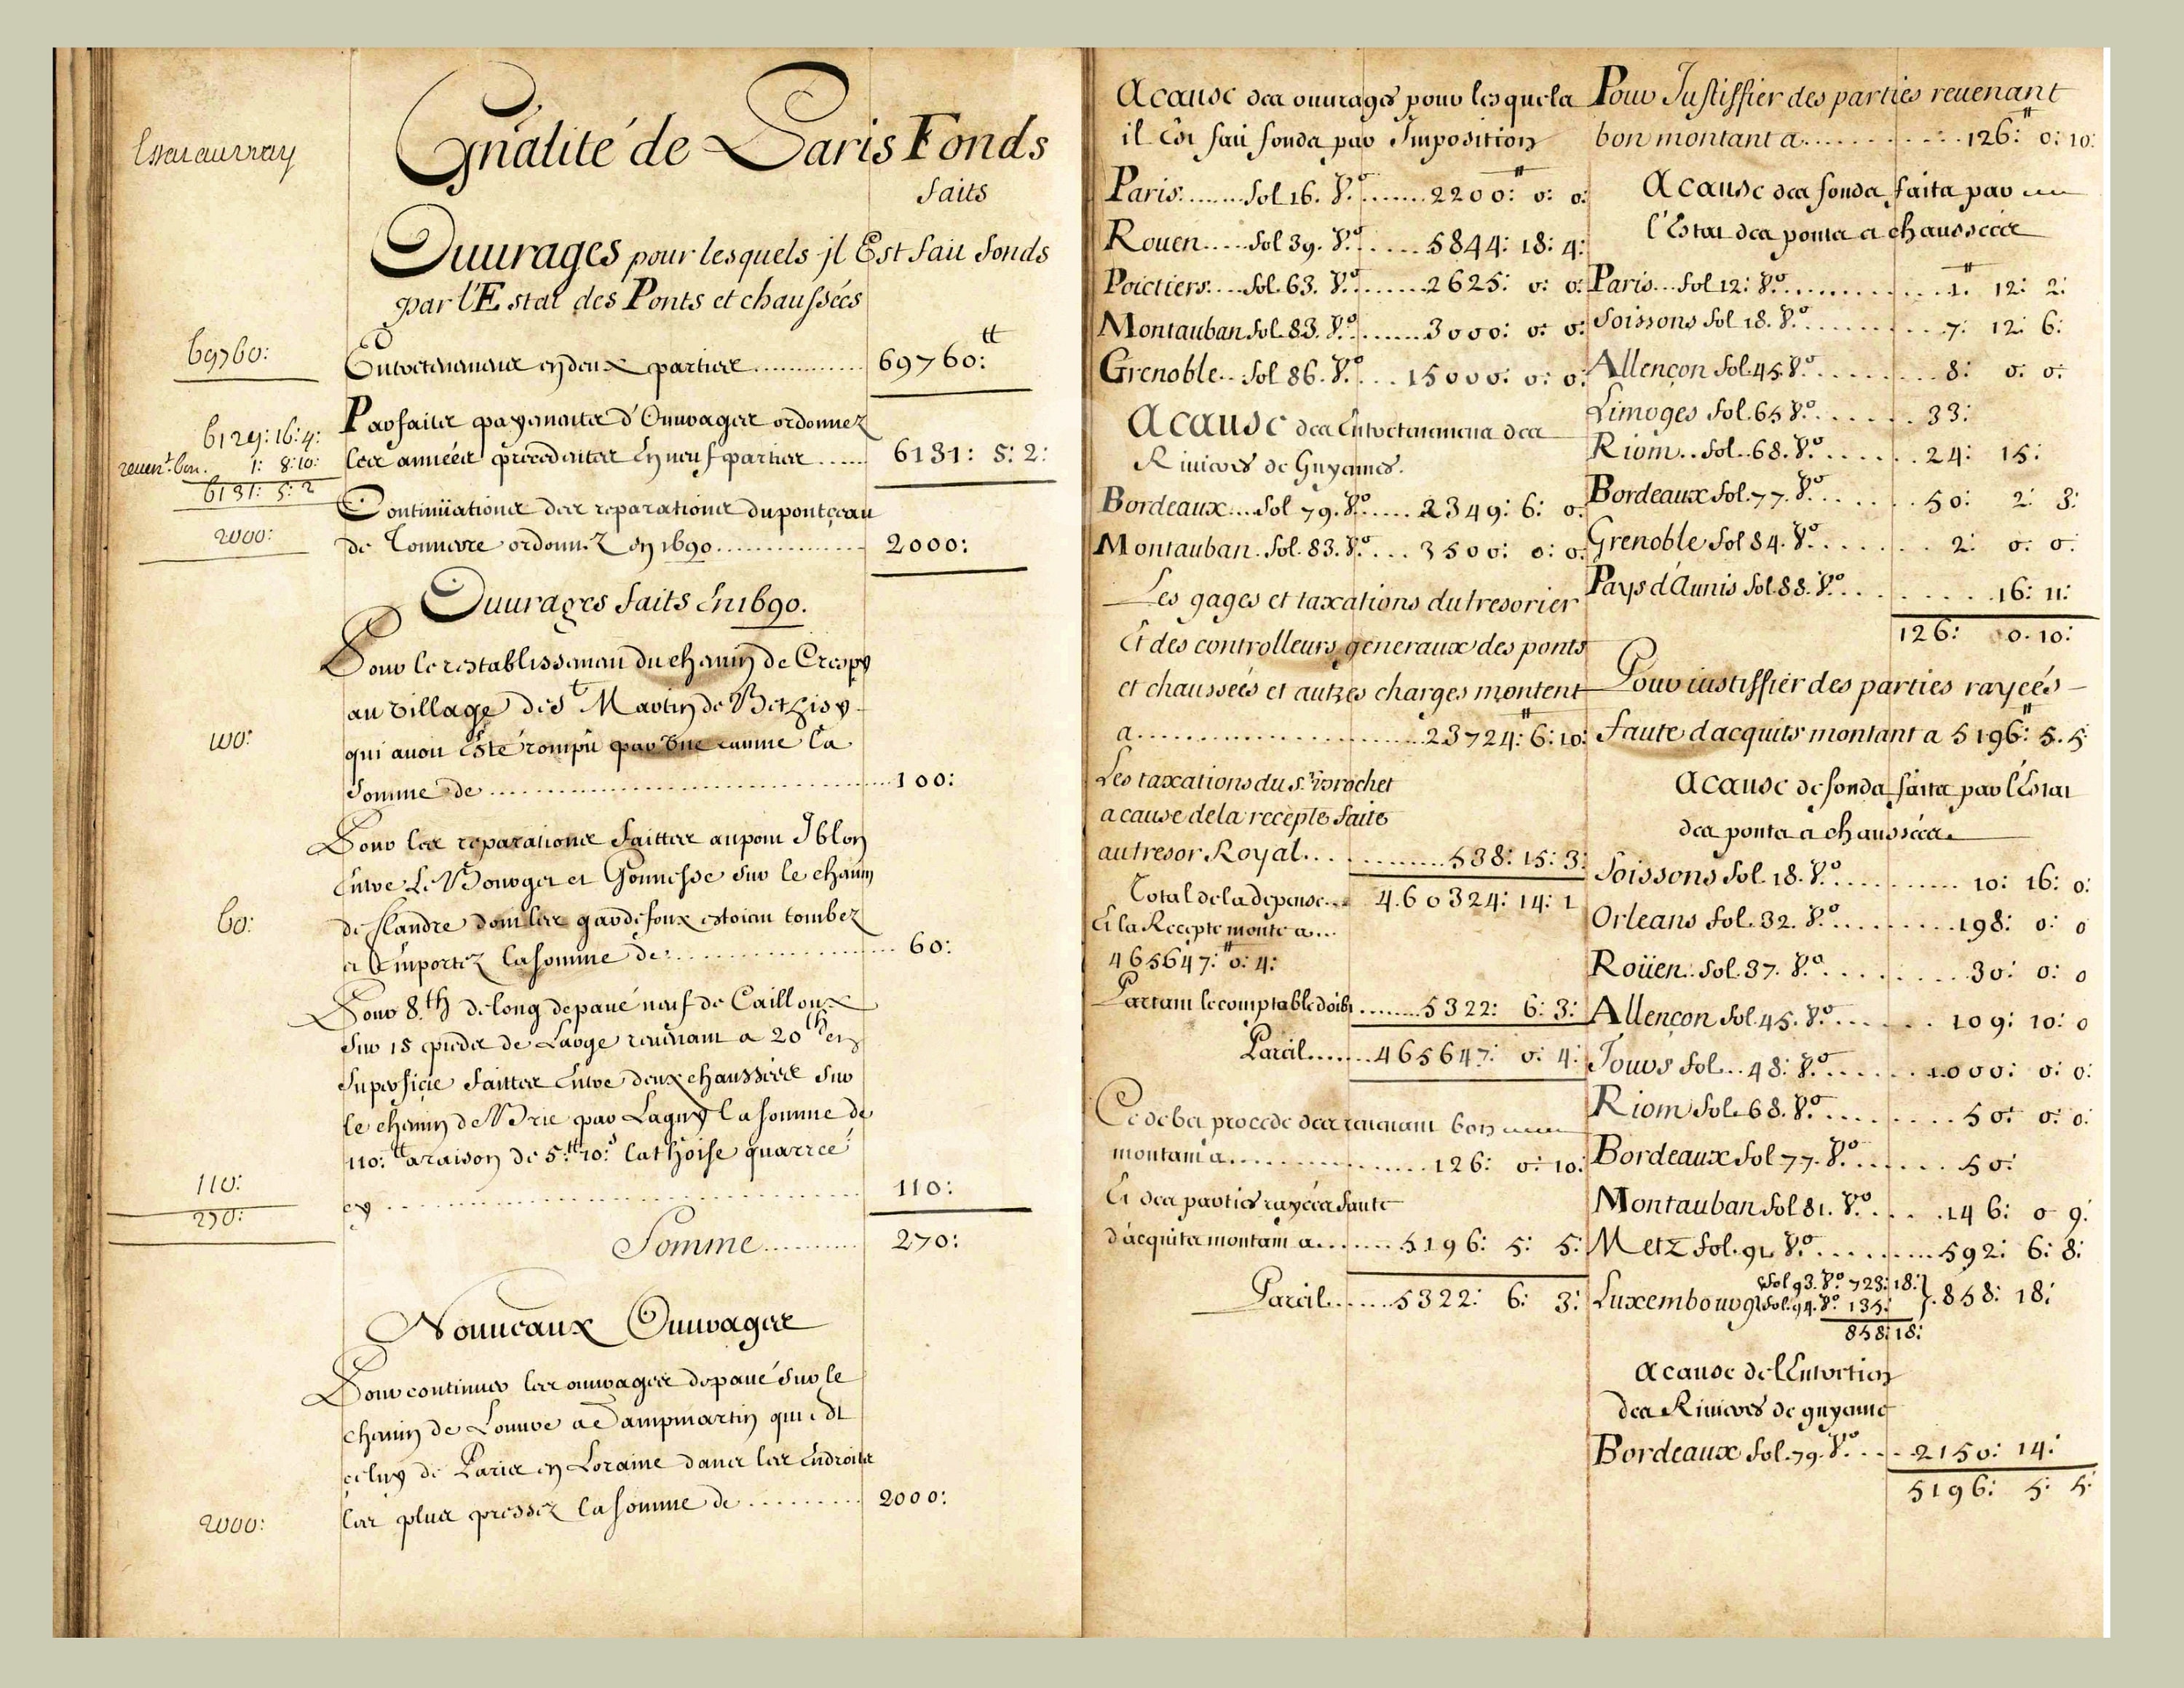 Gnãlité de Paris Fonds
faits
Ouurages pour lesquels jl Est fait fonds
par l'Estat des Ponts et chaussées
69760:
Entretenemens en deux parties ............ 69760:tt
6129: 16: 4:
reuent. bon. 1: 8: 10:
6131: 5: 2
Parfaites payements d'Ouurages ordonnez
les années precedentes En neuf parties ...... 6131: 5: 2:
2000:
Continüations des reparations du ponteceau
de Tonnerre ordonnez en 1690 ............... 2000:
Ouurages faits En 1690.
Pour le restablissement du chemin de Crespy
au village de St Martin de Bethisy
qui auoit Esté rompu par une rauine la
100:
somme de ........................................ 100:
Pour les reparations faittes au pont Iblon
Entre Le Bourget et Gonnesse sur le chemin
60:
de flandre dont les gardefoux estoient tombez
et Emportez la somme de ........................ 60:
Pour 8.th de long de paué neuf de Cailloux
sur 15 pieds de Large reuenant a 20 th en
superficie faittes Entre deux chaussées sur
le chemin de Brie par Lagny la somme de
110:tt a raison de 5:tt 10:s la thoise quarrée
110:
cy ........................................ 110:
270:
Somme .......... 270:
Nouueaux Ouurages
Pour continuer les ouurages de paué sur le
chemin de Louure a Dampmartin qui est
celuy de Paris en Loraine dans les Endroits
2000:
les plus pressez la somme de .......... 2000:
A cause des ouurages pour lesquels
il Est fait fonds par Imposition
Paris ....... fol 16. Vo. ....... 2200:tt 0: 0:
Rouen ..... fol 39. Vo. ..... 5844: 18: 4:
Poictiers .... fol. 63. Vo. ....... 2625: 0: 0:
Montauban fol. 83. Vo. ....... 3000: 0: 0:
Grenoble .. fol 86. Vo. ... 15000: 0: 0:
A cause des Entretenemens des
Riuieres de Guyennes.
Bordeaux ... fol 79. Vo. ..... 2349: 6: 0:
Montauban . fol. 83. Vo. ... 3500: 0: 0:
Les gages et taxations du tresorier
Et des controlleurs generaux des ponts
et chaussées et autres charges montent
a ............................ 23724:tt 6: 10:
Les taxations du Sr. Brochet
a cause de la recepte faite
au tresor Royal ............. 538: 15: 3:
Total de la depense ... 460324: 14: 1
Et la Recepte monte a ...
465647:tt 0: 4:
Partant le comptable doibt ........ 5322: 6: 3:
Pareil ....... 465647: 0: 4:
Ce debet procede des reuenant bon
montant a .................... 126: 0: 10:
Et des parties rayées faute
d'acquits montant a ....... 5196: 5: 5:
Pareil ....... 5322: 6: 3:
Pour Justiffier des parties reuenant
bon montant a ............... 126:tt 0: 10:
A cause des fonds faits par
l'Estat des ponts et chaussées
Paris ... fol 12: Vo. ........... 1.tt 12: 2:
Soissons fol 18. Vo. ........... 7: 12: 6:
Allençon fol. 45. Vo. ......... 8: 0: 0:
Limoges fol. 65 Vo. ...... 33:
Riom .. fol. 68. Vo. ...... 24: 15:
Bordeaux fol. 77. Vo. ...... 50: 2: 3:
Grenoble fol 84. Vo. ....... 2: 0: 0:
Pays d'Aunis fol. 88. Vo. .......... 16: 11:
126: 0. 10:
Pour iustiffier des parties rayeés
faute d'acquits montant a 5196:tt 5. 5
A cause de fonds faits par l'Estat
des ponts et chaussées
Soissons fol. 18. Vo. ........... 10: 16: 0:
Orleans fol. 32. Vo. ......... 198: 0: 0
Roüen. fol. 37. Vo. ......... 30: 0: 0
Allençon fol. 45. Vo. ...... 109: 10: 0
Tours fol. .. 48: Vo. ...... 1000: 0: 0:
Riom fol. 68. Vo. ......... 50: 0: 0:
Bordeaux fol 77. Vo. ...... 50:
Montauban fol 81. Vo. .... 146: 0 9:
Metz fol. 91. Vo. ......... 592: 6: 8:
fol 93. Vo. 723: 18:
Luxembourg fol. 94. Vo. 135: } . 858: 18:
858: 18:
A cause de l'Entortien
des Riuieres de guyenne
Bordeaux fol. 79. Vo. .... 2150: 14:
5196: 5: 5: